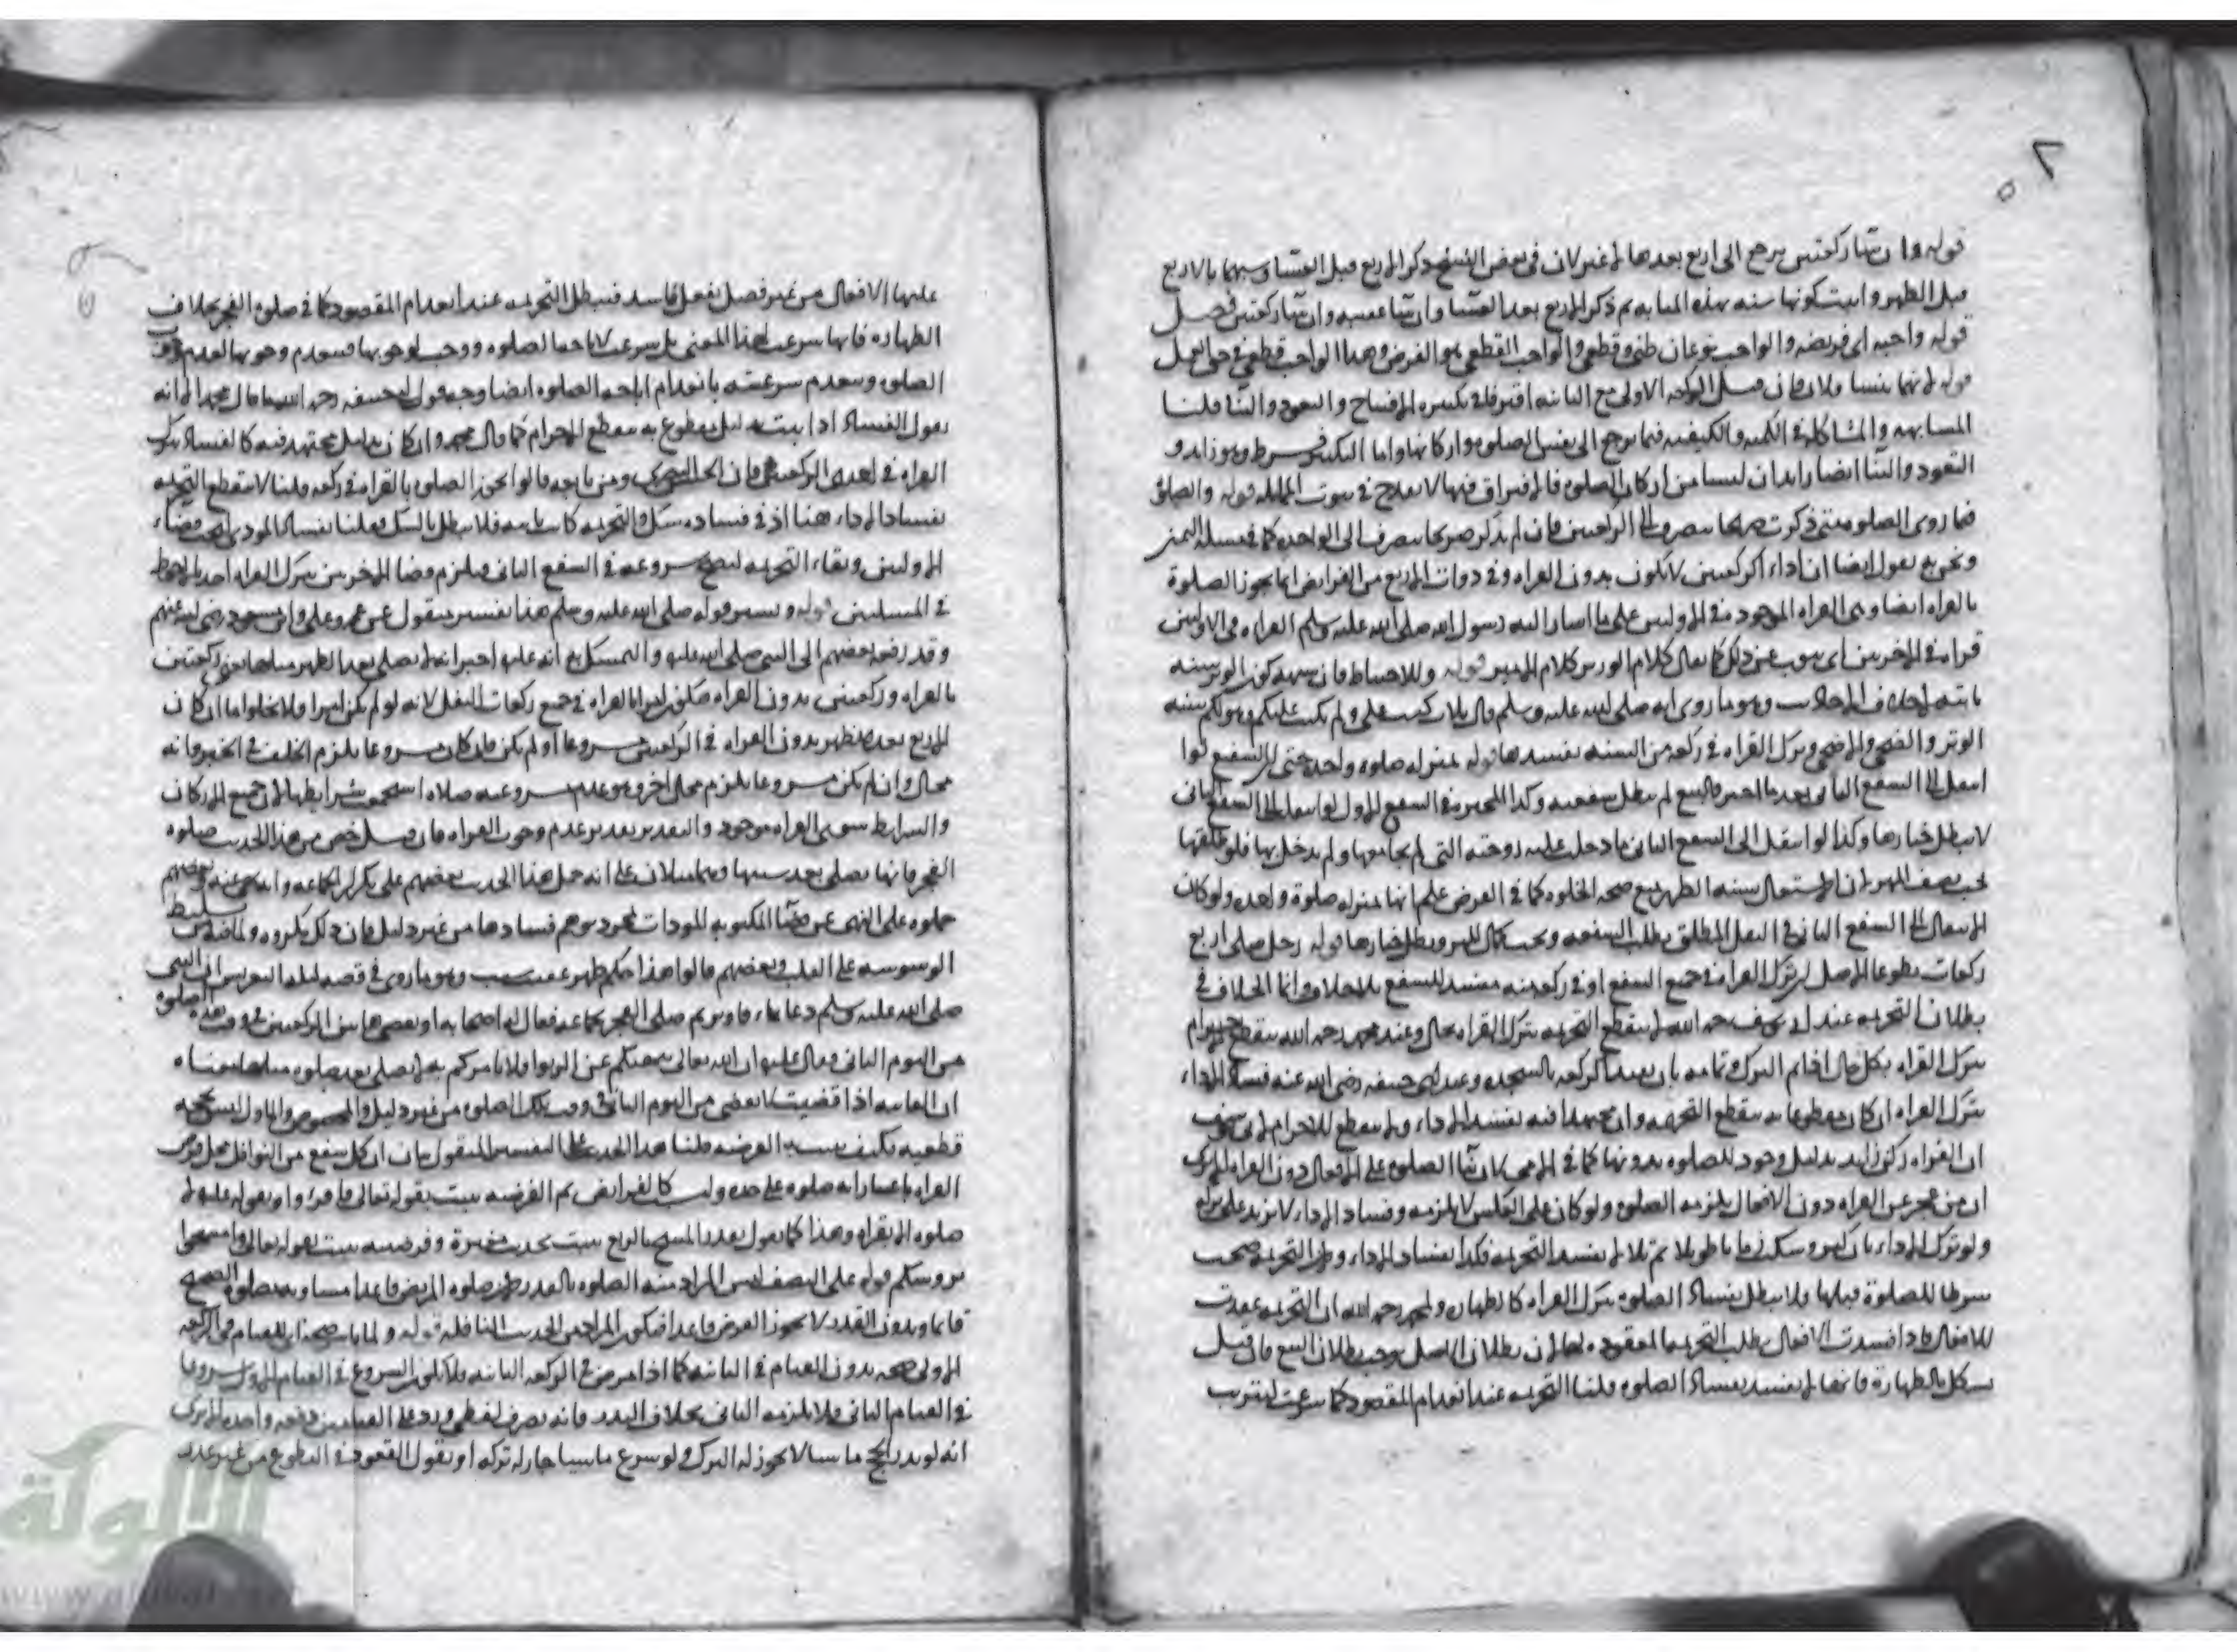 قوله وان شا ركعتين يرجع الى اربع بعدها لا غير لان في بعض النسخ ذكر الاربع قبل العشا وسهما بالاربع
قبل الظهر واثبت كونها سنه بهذه المثابه ثم ذكر الاربع بعد العشا وان شا عقيبه وان شا ركعتين فصل
قوله واجبه اى فريضه والواجب نوعان ظني وقطعي والواجب القطعي هو الفرض وهذا الواجب قطعي في حق العمل
قوله لانهما فان قيل الركعه الاولى مع الثانيه افترقا في تكبيره الافتتاح والتعوذ والثنا قلنا
المشابهه والمشاكله في الكميه والكيفيه فيما يرجع الى نفس الصلوه واركانها واما التكبير فشرط وهو زايد و
التعوذ والثنا ايضا زايدان ليسا من اركان الصلوه فالافتراق فيها لا يقدح في ثبوت المماثله قوله والصلوه
فيما روى الصلوه متى ذكرت صريحا ينصرف الى الركعتين فان لم يذكر صريحا ينصرف الى الواحده كما في مسله اليمين
ونحن نقول ايضا ان اداء الركعتين لا تكون بدون القراه وفي ذوات الاربع من الفرايض انما يجوز الصلوة
بالقراه ايضا وهى القراه الموجوده في الاوليين على ما اشار اليه رسول الله صلى الله عليه وسلم القراه في الاوليين
قراه في الاخريين اى ينوب عن ذلك كما يقال كلام الوزير كلام الامير قوله وللاحتياط فان كون الوتر سنه
ثابته وهو ما روى انه صلى الله عليه وسلم قال ثلاث كتب على ولم يكتب عليكم وهو لكم سنه
الوتر والضحى والاضحى وترك القراه في ركعه من السنه يفسدها قوله بمنزله صلوه واحده حتى ان الشفيع لوا
انتقل الى الشفع الثاني بعد ما اخبر بالبيع لم يبطل شفعته وكذا المخيره في الشفع الاول لو انتقل الى الشفع الثاني
لا يبطل خيارها وكذا لو انتقل الى الشفع الثاني فدخلت عليه زوجته التي لم يجامعها ولم يدخل بها فلو طلقها
يجب نصف المهر لان الاشتغال بسنه الظهر يمنع صحه الخلوه كما في الفرض علم انها بمنزله صلوة واحده ولو كان
الانتقال الى الشفع الثاني في النفل المطلق بطلت الشفعه ويجب كمال المهر وبطل خيارها قوله رجل صلى اربع
ركعات تطوعا الاصل ان ترك القراه في جميع الشفع او في ركعه منه مفسد للشفع بلا خلاف وانما الخلاف في
بطلان التحريمه عند ابي يوسف رحمه الله لا ينقطع التحريمه بترك القراه بحال وعند محمد رحمه الله ينقطع الاحرام
بترك القراه بكل حال اذا تم الترك وتمامه بان يقيد الركعه بالسجده وعند ابي حنيفه رضي الله عنه فساد الاداء
بترك القراه ان كان مقطوعا به ينقطع التحريمه وان مجتهدا فيه يفسد الاداء ولا ينقطع الاحرام لابي يوسف
ان القراه ركن زايد بدليل وجود الصلوه بدونها كما في الامي كان بنا الصلوه على الافعال دون القراه الا يرى
ان من عجز عن القراه دون الافعال يلزمه الصلوه ولو كان على العكس لا يلزمه وفساد الاداء لا يزيد على تركه
ولو ترك الاداء بان كبر وسكت زمانا طويلا ثم تلا لا يفسد التحريمه فكذا بفساد الاداء ولان التحريمه صحت
شرطا للصلوة قبلها فلا يبطل بفساد الصلوه بترك القراه كالطهاره ولمحمد رحمه الله ان التحريمه عقدت
للافعال فاذا فسدت الافعال بطلت التحريمه المعقوده لها لان بطلان الاصل يوجب بطلان التبع فان قيل
يشكل بالطهارة فانها لا يفسد بفساد الصلوه قلنا التحريمه عند انعدام المقصود كما شرعت ليترتب
عليها الافعال من غير فصل بفعل فاسد فتبطل التحريمه عند انعدام المقصود كما في صلوه الفجر بخلاف
الطهاره فانها ما شرعت لهذا المعنى بل شرعت لاباحه الصلوه ووجبت لوجوبها فينعدم وجوبها لعدم وجوب
الصلوه وينعدم شرعيته بانعدام اباحه الصلوه ايضا وجه قول ابي حنيفه رحمه الله ما قال محمد الا انه
يقول الفساد اذا ثبت بدليل مقطوع به ينقطع الاحرام كما قال محمد وان كان بدليل مجتهد فيه كالفساد بترك
القراه في احدى الركعتين فان الحسن البصري ومن تابعه قالوا تجوز الصلوه بالقراه في ركعه قلنا لا تنقطع التحريمه
بفساد الاداء هنا اذ في فساده شك والتحريمه كانت ثابته فلا يبطل بالشك وقلنا بفساد المودى قضاء
الاوليين وبقاء التحريمه ليصح شروعه في الشفع الثاني ويلزم قضا الاخريين بترك القراه اخذا بالاحتياط
في المسلتين قوله وتفسير قوله صلى الله عليه وسلم هذا تفسير منقول عن عمر وعلي وابن مسعود رضي الله عنهم
وقد رفعه بعضهم الى النبي صلى الله عليه والتمسك به انه عليه اخبر انه لا يصلى بعد الظهر مثلها يعني ركعتين
بالقراه وركعتين بدون القراه فيكون امرا بالقراه في جميع ركعات النفل لانه لو لم يكن امرا فلا يخلوا ما ان كان
الاربع بعد الظهر بدون القراه في الركعتين مشروعا او لم يكن فان كان مشروعا يلزم الخلف في الخبر وانه
محال وان لم يكن مشروعا يلزم محال اخر وهو عدم شروعيه صلاه استجمعت شرايطها لان جميع الاركان
والشرايط سوى القراه موجود والتقدير تقدير عدم وجوب القراه فان قيل خص من هذا الحديث صلوه
الفجر فانها تصلى بعد سنتها وهما مثلان على انه حمل هذا الحديث بعضهم على تكرار الجماعه وبعضهم
حملوه على النهي عن قضا المكتوبه المودات بمجرد توهم فسادها من غير دليل فان ذلك مكروه ولما فيه من تسليط
الوسوسه على القلب وبعضهم قالوا هذا حكم ظهر عقيب سبب وهو ما روى في قصه ليله التعريس ان النبي
صلى الله عليه وسلم دعا بماء فاوتر ثم صلى الفجر بجماعه فقال له اصحابه او نقضي هاتين الركعتين في وقت هذه الصلوه
من اليوم الثاني فقال عليه ان الله تعالى ينهيكم عن الربوا ولا يامركم به لا يصلى بعد صلوه مثلها معناه
ان الفايته اذا قضيت لا تقضى من اليوم الثاني وقت تلك الصلوه من غير دليل والمخصوص والماول ليس بحجه
قطعيه فكيف يثبت به الفرضيه قلنا هذا الحديث على التفسير المنقول بيان ان كل شفع من النوافل محل فرض
القراه باعتبار انه صلوه على حده وليست كالفرايض ثم الفرضيه ثبت بقوله تعالى فاقرءوا وبقوله عليه لا
صلوه الا بقراه وهذا كما نقول بقدر المسح بالربع ثبت بحديث مغيرة وفرضيته ثبت بقوله تعالى وامسحوا
بروسكم قوله على النصف ليس المراد منه الصلوه بالعذر لان صلوه المريض قاعدا مساويه صلوه الصحيح
قايما وبدون العذر لا يجوز الفرض قاعدا فيكون المراد من الحديث النافله قوله ولما باشر صحه
الاولى صحه بدون القيام في الثانيه كما اذا مرض في الركعه الثانيه فلا يكون الشروع في القيام الاول شروعا
في القيام الثاني فلا يلزمه الثاني بخلاف النذر فانه تصرف لفظي ويدعلى القيامين دفعه واحده الا يرى
انه لو نذر الحج ماشيا لا يجوز له الترك ولو شرع ماشيا جاز له تركه او نقول القعود في التطوع من غير عذر